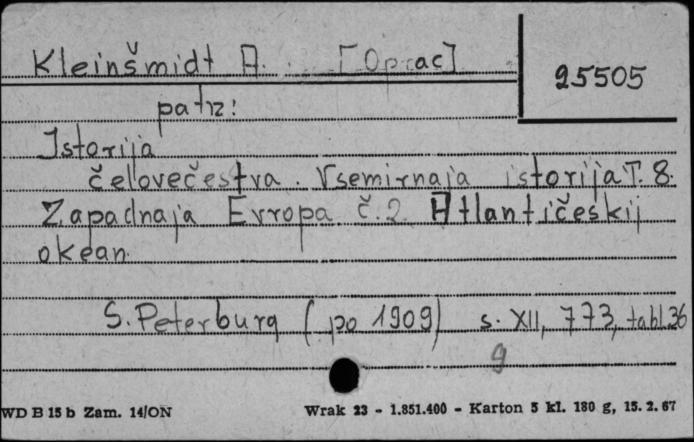 Kleinšmidt A. [Oprac]
25505
patrz:
Istorija
čelovečestva. Vsemirnaja istorija T. 8.
Zapadnaja Evropa č. 2. Atlantičeskij
okean.
S. Peterburg (po 1909) s. XII, 773, tabl. 36
9
WD B 15 b Zam. 14/ON Wrak 23 - 1.851.400 - Karton 5 kl. 180 g, 15. 2. 67